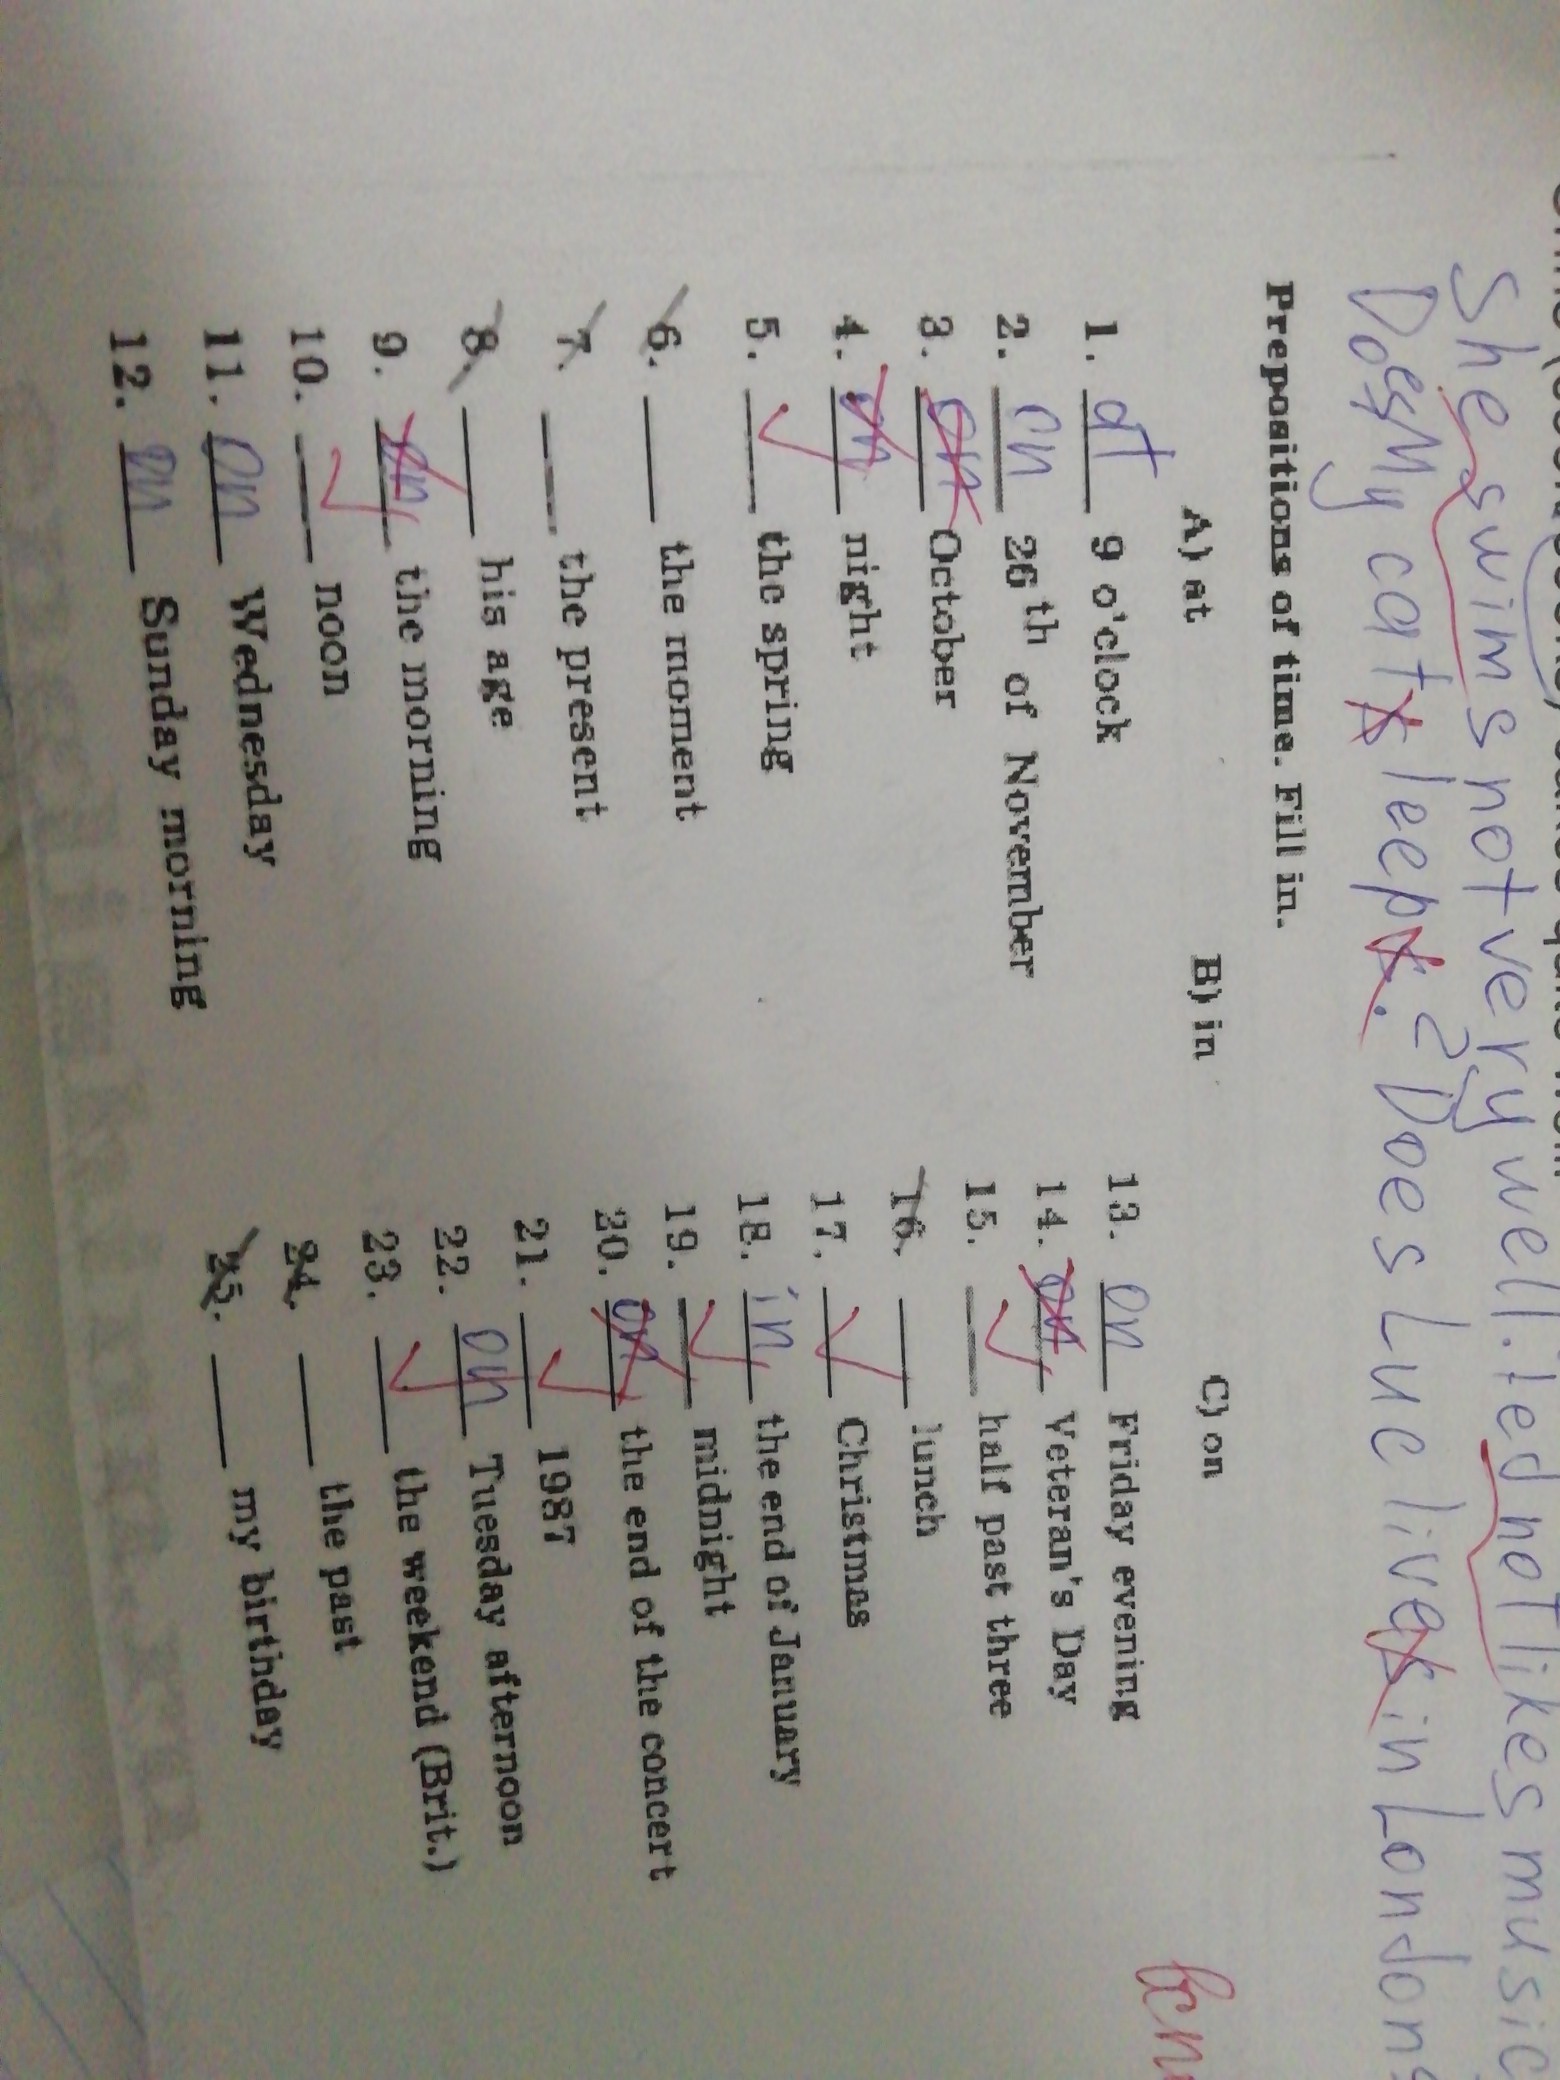 She swims not very well. Ted not likes music
Does My cats leeps. ? Does Luc lives in London
Prepositions of time. Fill in.
A) at B) in C) on
1. at 9 o'clock
2. on 26th of November
3. on October
4. on night
5. ___ the spring
6. ___ the moment
7. ___ the present
8. ___ his age
9. on the morning
10. ___ noon
11. on Wednesday
12. on Sunday morning
13. on Friday evening
14. on Veteran's Day
15. ___ half past three
16. ___ lunch
17. ___ Christmas
18. in the end of January
19. ___ midnight
20. on the end of the concert
21. ___ 1987
22. on Tuesday afternoon
23. ___ the weekend (Brit.)
24. ___ the past
25. ___ my birthday